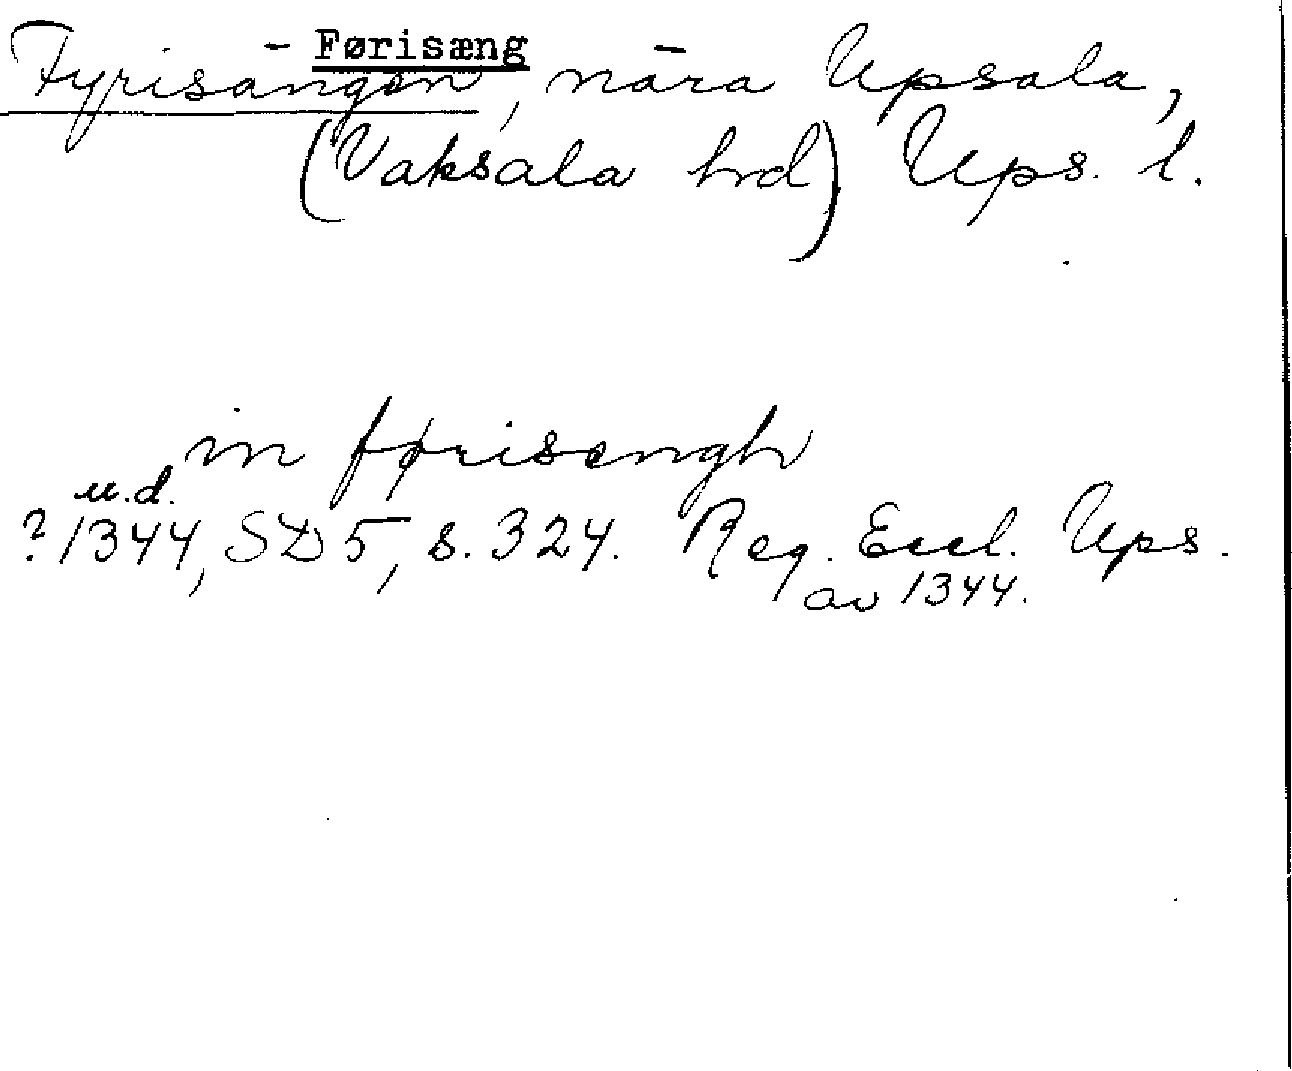 Førisæng
Fyrisängen, nära Upsala,
(Vaksala hrd) Ups. l.
inførisengh
u.d.
? 1344, SD 5, s. 324. Reg. Eccl. Ups.
av 1344.